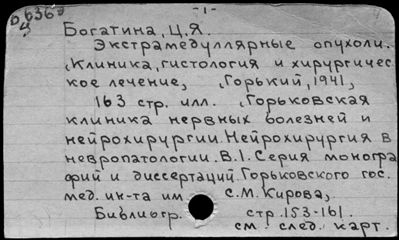 Б6369
4
- 1 -
Богатина, Ц.Я.
Экстрамедуллярные опухоли.
Клиника, гистология и хирургичес
кое лечение, Горький, 1941,
163 стр. илл. Горьковская
клиника нервных болезней и
нейрохирургии. Нейрохирургия в
невропатологии. В.1. Серия моногра
фий и диссертаций. Горьковского гос.
мед. ин-та им С.М. Кирова,
Библиогр. стр. 153-161.
см. след. карт.